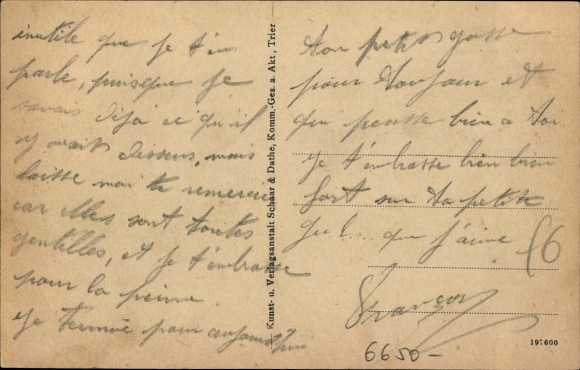 inutile que je t'en
parle, puisque je
savais déja ce qu'il
y avait dessus, mais
laisse moi te remercier
car elles sont toutes
gentilles, et je t'embrasse
pour la peine.
Je termine pour aujourd'hui
Ton petit gosse
pour toujour et
qui pensse bien a toi
je t'embrasse bien bien
fort sur ta petite
gu... que j'aime
François
Kunst- u. Verlagsanstalt Schaar & Dathe, Komm.-Ges. a. Akt., Trier
197600
6650-